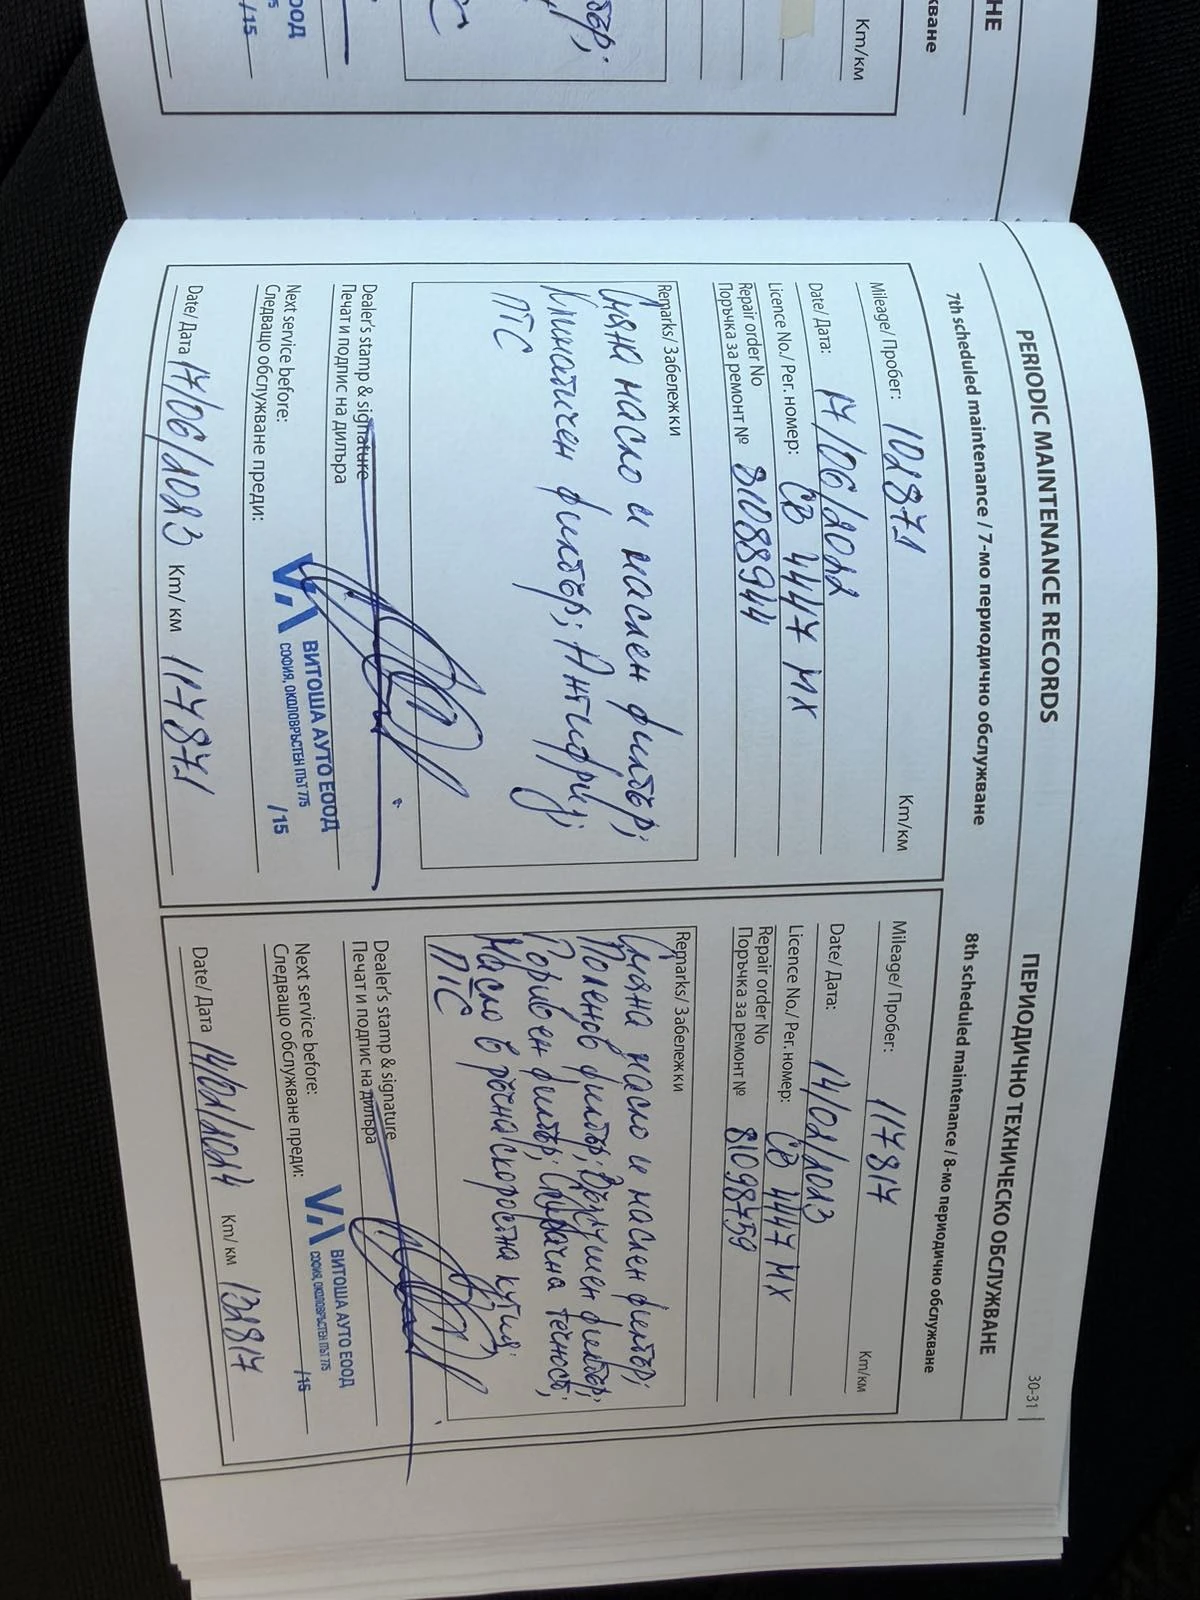 НЕ
жване
Km/км
бър;
ООД
/15
PERIODIC MAINTENANCE RECORDS
ПЕРИОДИЧНО ТЕХНИЧЕСКО ОБСЛУЖВАНЕ
30-31
7th scheduled maintenance / 7-мо периодично обслужване
Mileage/ Пробег: 102871 Km/км
Date/ Дата: 17/06/2022
Licence No./ Рег. номер: СВ 4447 МХ
Repair order No
Поръчка за ремонт № 81088944
Remarks/ Забележки
Смяна масло и маслен филтър;
Климатичен филтър; Антифриз;
ПТС
Dealer's stamp & signature
Печат и подпис на дилъра
ВИТОША АУТО ЕООД
СОФИЯ, ОКОЛОВРЪСТЕН ПЪТ 775
/15
Next service before:
Следващо обслужване преди:
Date/ Дата 17/06/2023 Km/ км 117871
8th scheduled maintenance / 8-мо периодично обслужване
Mileage/ Пробег: 117817 Km/км
Date/ Дата: 14/02/2023
Licence No./ Рег. номер: СВ 4447 МХ
Repair order No
Поръчка за ремонт № 81098759
Remarks/ Забележки
Смяна масло и маслен филтър;
Поленов филтър; Въздушен филтър;
Горивен филтър; Спирачна течност;
Масло в ръчна скоростна кутия;
ПТС
Dealer's stamp & signature
Печат и подпис на дилъра
ВИТОША АУТО ЕООД
СОФИЯ, ОКОЛОВРЪСТЕН ПЪТ 775
/15
Next service before:
Следващо обслужване преди:
Date/ Дата 14/02/2024 Km/ км 132817